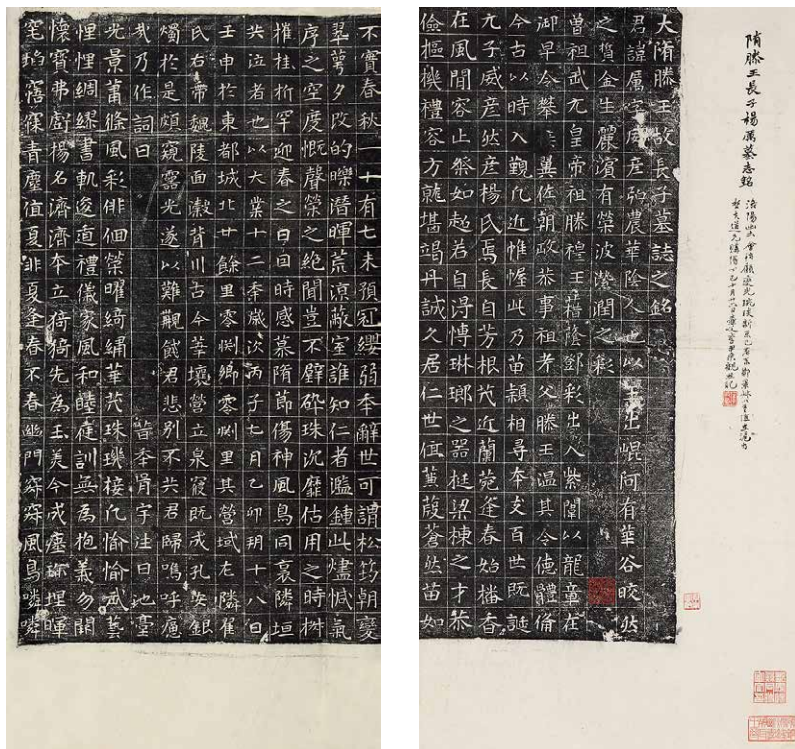 隋滕王長子楊厲墓志銘
大隋滕王故長子墓誌之銘
君諱厲字威彥弘農華陰人也以玉出崐阿有華谷皎然
之質金生麗濱有榮波瀅潤之彩
曾祖武元皇帝祖滕穆王稽陰鄧彩出入紫闈以龍章在
御早令攀翼佐朝政恭事祖考父滕王溫其令德體備
今古以時入覲几近帷幄此乃苗穎相尋本支百世既誕
九子威彥然彥楊氏焉長自芳根茂近蘭菀逢春始播香
在風聞容止祭如趍君自浔愽琳瑯之器挺梁棟之才恭
儉樞機禮容方就堪竭丹誠久居仁世值蒹葭蒼然苗如
不實春秋一十有七未預冠纓弱年辭世可謂松筠朝變
翠萼夕改的皪潛暉荒涼蔽室誰知仁者濫鍾此燼悈氣
序之空度慨聲榮之絕聞豈不璧碎珠沉靡估用之時
摧桂折罕迎春之日自時感慕隋節傷神風鳥同哀隣垣
共泣者也以大業十二年歲次丙子七月乙卯朔十八日
壬申於東都城北廿餘里零渕鄉零渕里其營域左隣崔
氏右帶魏陵面瀫背川古今莘壤營立泉寢既戎孔安銀
燭於是頗窺窰光遂以難觀餞君悲別不共君歸嗚呼
哉乃作詞曰 皆奉賢字注曰池臺
光景蕭條風彩俳佪榮曜綺繡華茂珠璣接几愉愉感藝
悝悝綢繆書軌逡逎禮儀家風和睦庭訓無為抱義勿開
懷寶弗衒揚名濟濟本立猗猗先為玉美今成塵珎埋暉
窀埳窰青塵值夏非夏逢春不春幽門窈窈風鳥噒噒